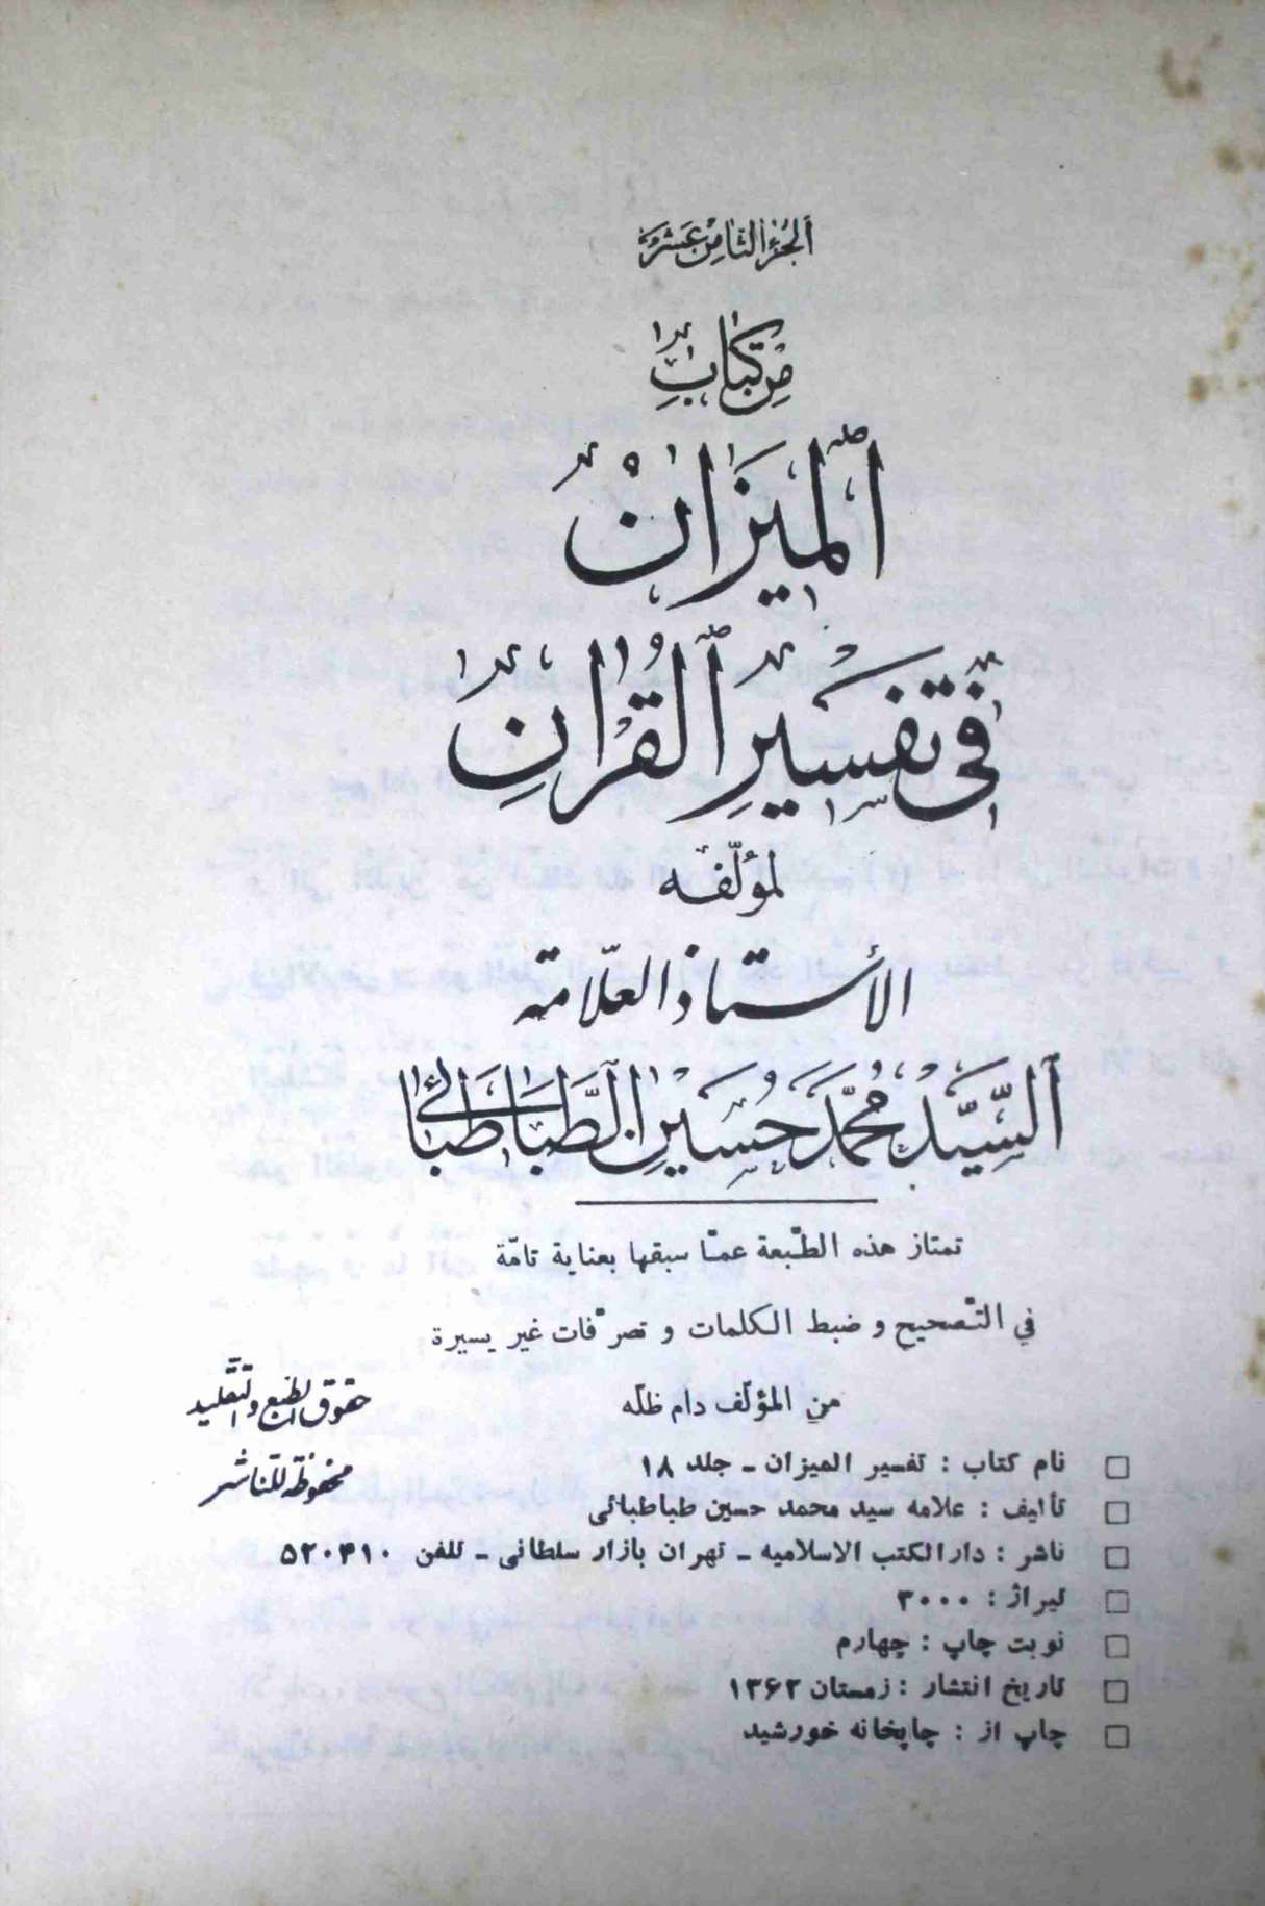 الجزء الثامن عشر
من كتاب
الميزان
في تفسير القرآن
لمؤلّفه
الأستاذ العلّامة
السيّد محمّد حسين الطباطبائي
تمتاز هذه الطّبعة عمّا سبقها بعناية تامّة
في التّصحيح و ضبط الكلمات و تصرّفات غير يسيرة
من المؤلّف دام ظلّه
حقوق الطبع والتقليد
محفوظة للناشر
□ نام كتاب : تفسير الميزان - جلد ۱۸
□ تأليف : علامه سيد محمد حسين طباطبائى
□ ناشر : دارالكتب الاسلاميه - تهران بازار سلطانى - تلفن ۵۲۰۴۱۰
□ تيراژ : ۳۰۰۰
□ نوبت چاپ : چهارم
□ تاريخ انتشار : زمستان ۱۳۶۲
□ چاپ از : چاپخانه خورشيد